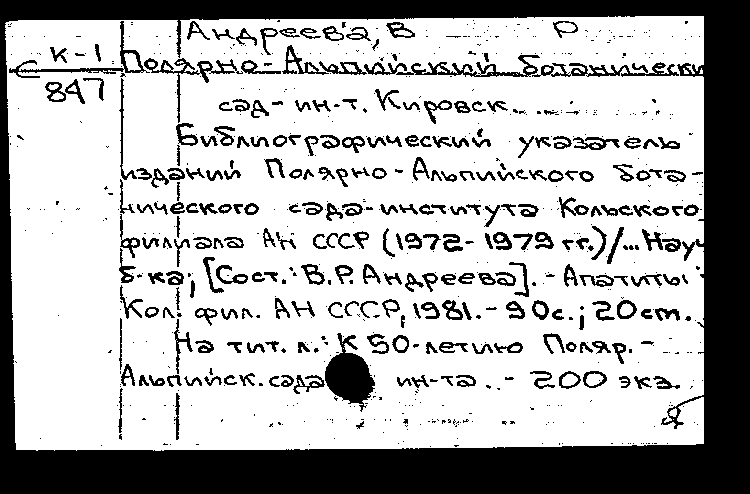 Андреева, В Р
К-1
С Полярно-Альпийский ботанически
847
сад-ин-т. Кировск.
Библиографический указатель
изданий Полярно-Альпийского бота-
нического сада-института Кольского
филиала АН СССР (1972-1979 гг.)/... Науч
б-ка; [Сост.: В.Р. Андреева]. - Апатиты :
Кол. фил. АН СССР, 1981. - 90с.; 20см.
На тит. л.: К 50-летию Поляр.-
Альпийск. сада ин-та. - 200 экз.